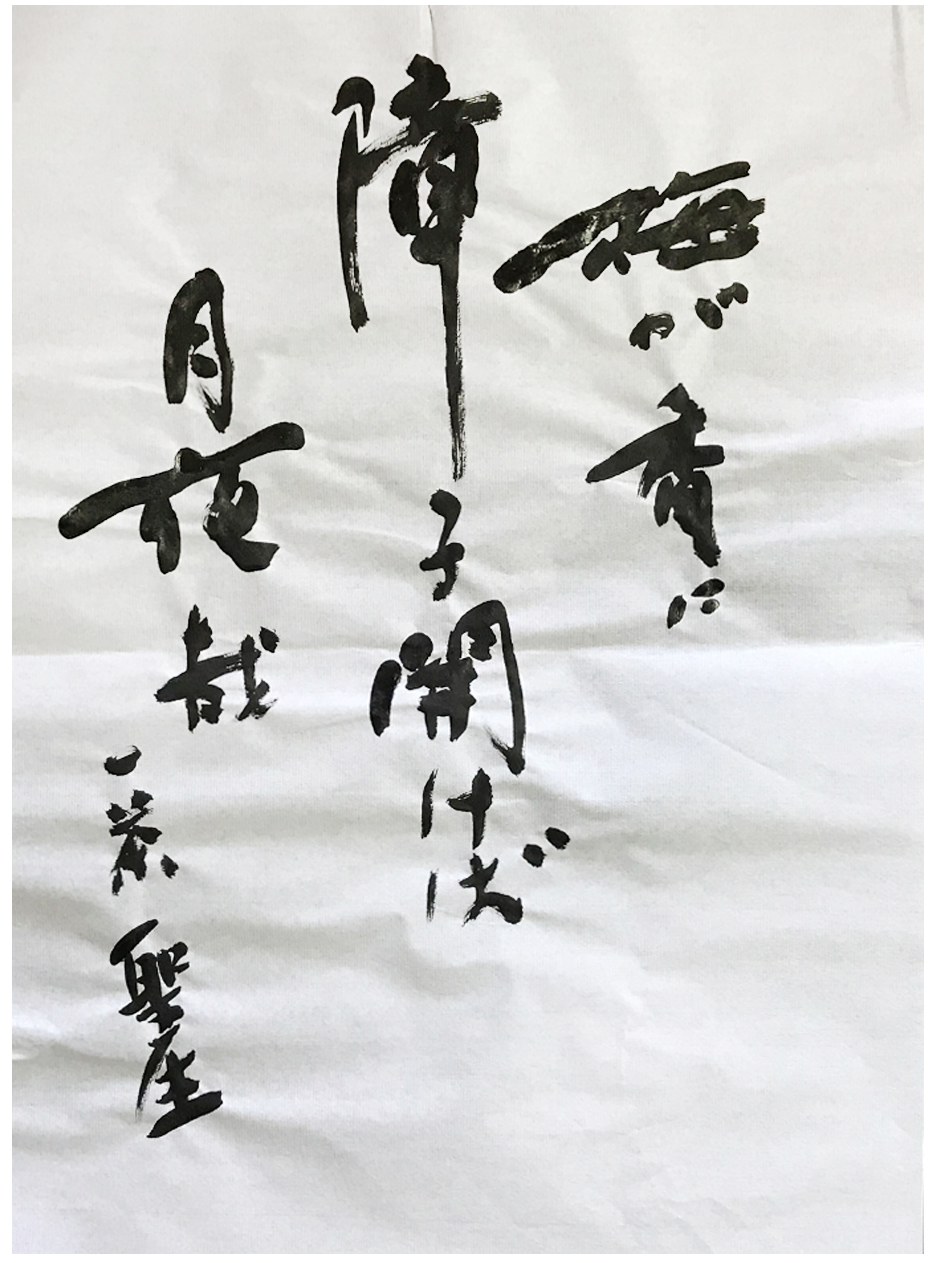 梅が香に
障子開けば
月夜哉
一茶 聖